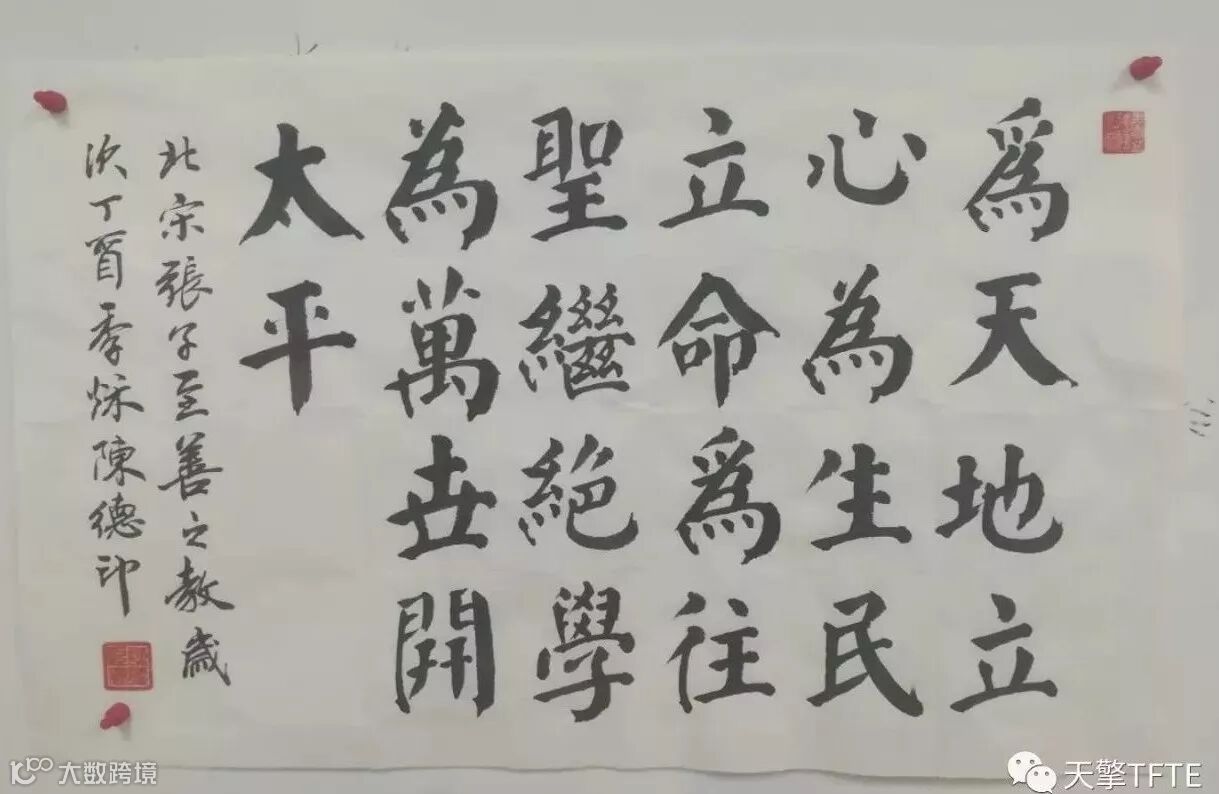 爲天地立
心為生民
立命爲往
聖繼絕學
為萬世開
太平
北宋張子至善之教歲
次丁酉季秌陳德印
大数跨境
天擎TFTE